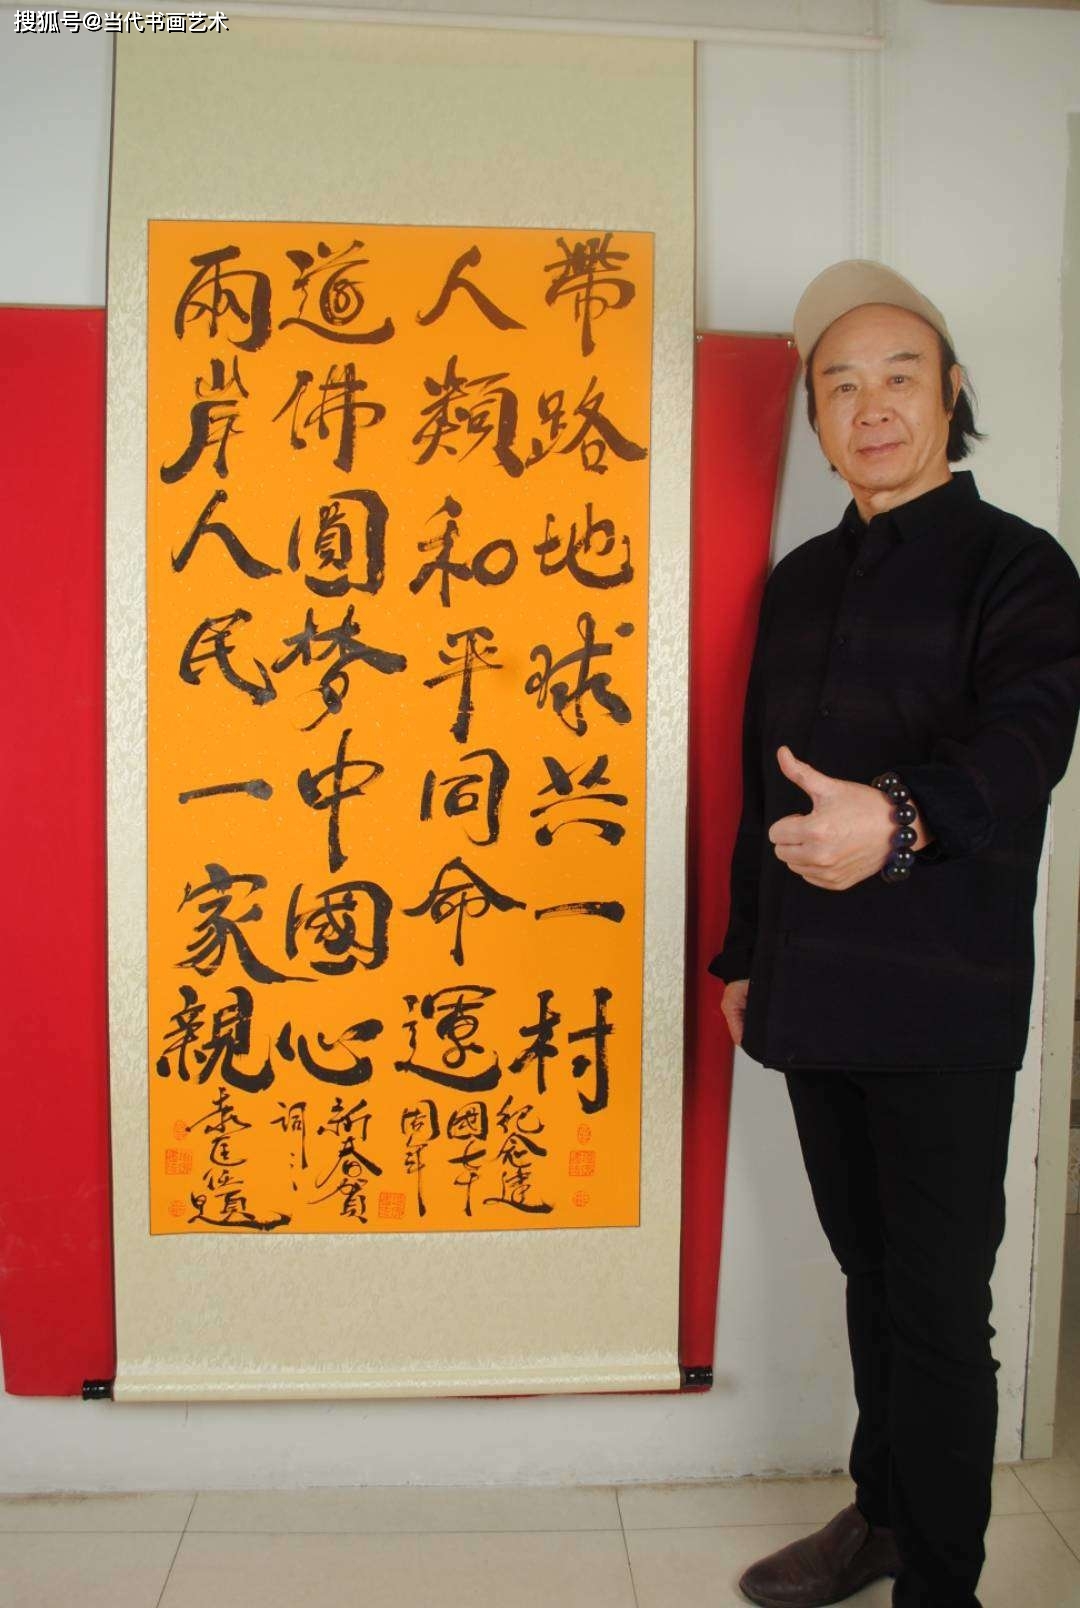 搜狐号@当代书画艺术
帶路地球共一村
人類和平同命運
道佛圓梦中國心
兩岸人民一家親
紀念建
國七十
周年
新春賀
詞